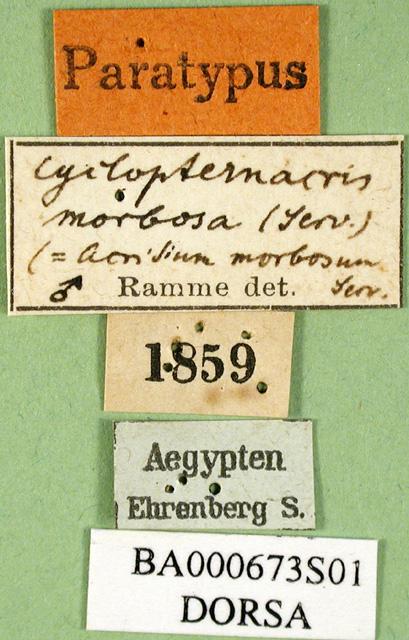 Paratypus
Cyclopternacris
morbosa (Serv.)
(= Acridium morbosum
♂ Ramme det. Serv.
1859
Aegypten
Ehrenberg S.
BA000673S01
DORSA